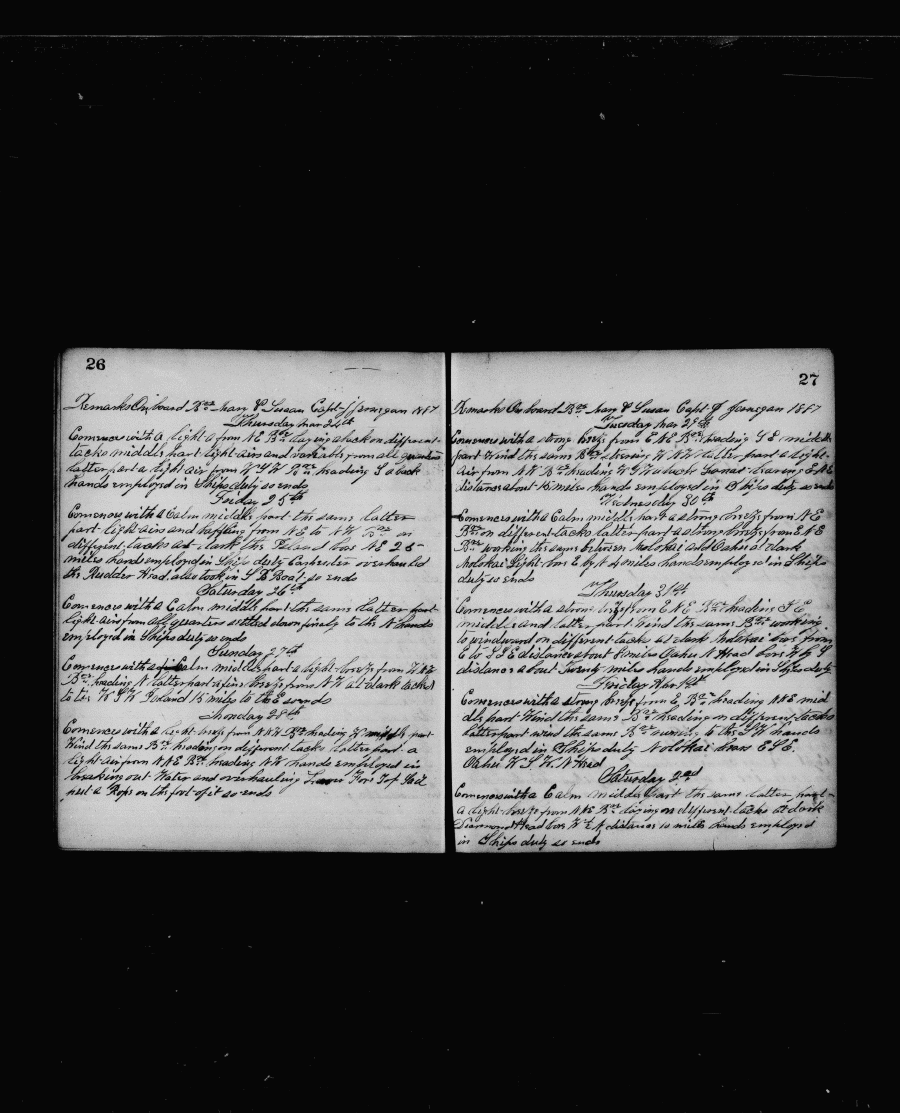 26
Remarks On board Bqe Mary & Susan Capt J Jernegan 1887
Thursday Mar 24th
Comences with a light a from N E Bqe laying aluck on different
tacks middle part light airs and variable from all quarters
latter part a light air from W S W Bqe heading S aback
hands employed in Ships duty so ends
Friday 25th
Comences with a Calm middle part the same latter
part light airs and baffling from N E to N W Bqe on
different tacks at dark the Island bore N E 25
miles hands employed in Ships duty Carpenter overhauld
the Rudder Head, also took in S B Boat, so ends
Saturday 26th
Comences with a Calm middle part the same latter part
light airs from all quarters settled down finely to the N hands
employed in Ships duty so ends
Sunday 27th
Comences with a Calm middle part a light breeze from
Bqe heading N latter part a fine breeze from N W at dark tacked
to the W S W Island 15 miles to the E so ends
Monday 28th
Comences with a light breeze from Bqe heading W middle part
Wind the same Bqe heading on different tacks latter part a
light air from N N E Bqe heading N W hands employed in
breaking out Water and overhauling Fore Top Sail
put a Rope on the foot of it so ends
27
Remarks On board Bqe Mary & Susan Capt J Jernegan 1887
Tuesday Mar 29th
Comences with a strong breeze from E N E Bqe heading S E middle
part Wind the same Bqe steering W N W latter part a light
air from N N Bqe heading W S W at dark bearing E N E
distance about 15 miles hands employed in Ships duty so ends
Wednesday 30th
Comences with a Calm middle part a strong breeze from N E
Bqe on different tacks latter part a strong breeze from E N E
Bqe working the same between Molokai and Oahu at dark
Molokai Light bore E by N 4 miles hands employed in Ships
duty so ends
Thursday 31st
Comences with a strong breeze from E N E Bqe heading S E
middle and latter part Wind the same Bqe working
to windward on different tacks at dark Molokai bore from
E to S E distance about miles Oahu N Head bore W by S
distance about Twenty miles hands employed in Ships duty
Friday Apr 1st
Comences with a strong breeze from E, Bqe heading N N E mid
dle part Wind the same Bqe heading on different tacks
latter part wind the same Bqe running to the S W hands
employed in Ships duty Molokai bears E S E.
Oahu W S W N Head
Saturday 2nd
Comences with a Calm middle part the same latter part
a light breeze from N N E Bqe laying on different tacks at dark
Diamond Head bore W N distance 10 miles hands employed
in Ships duty so ends